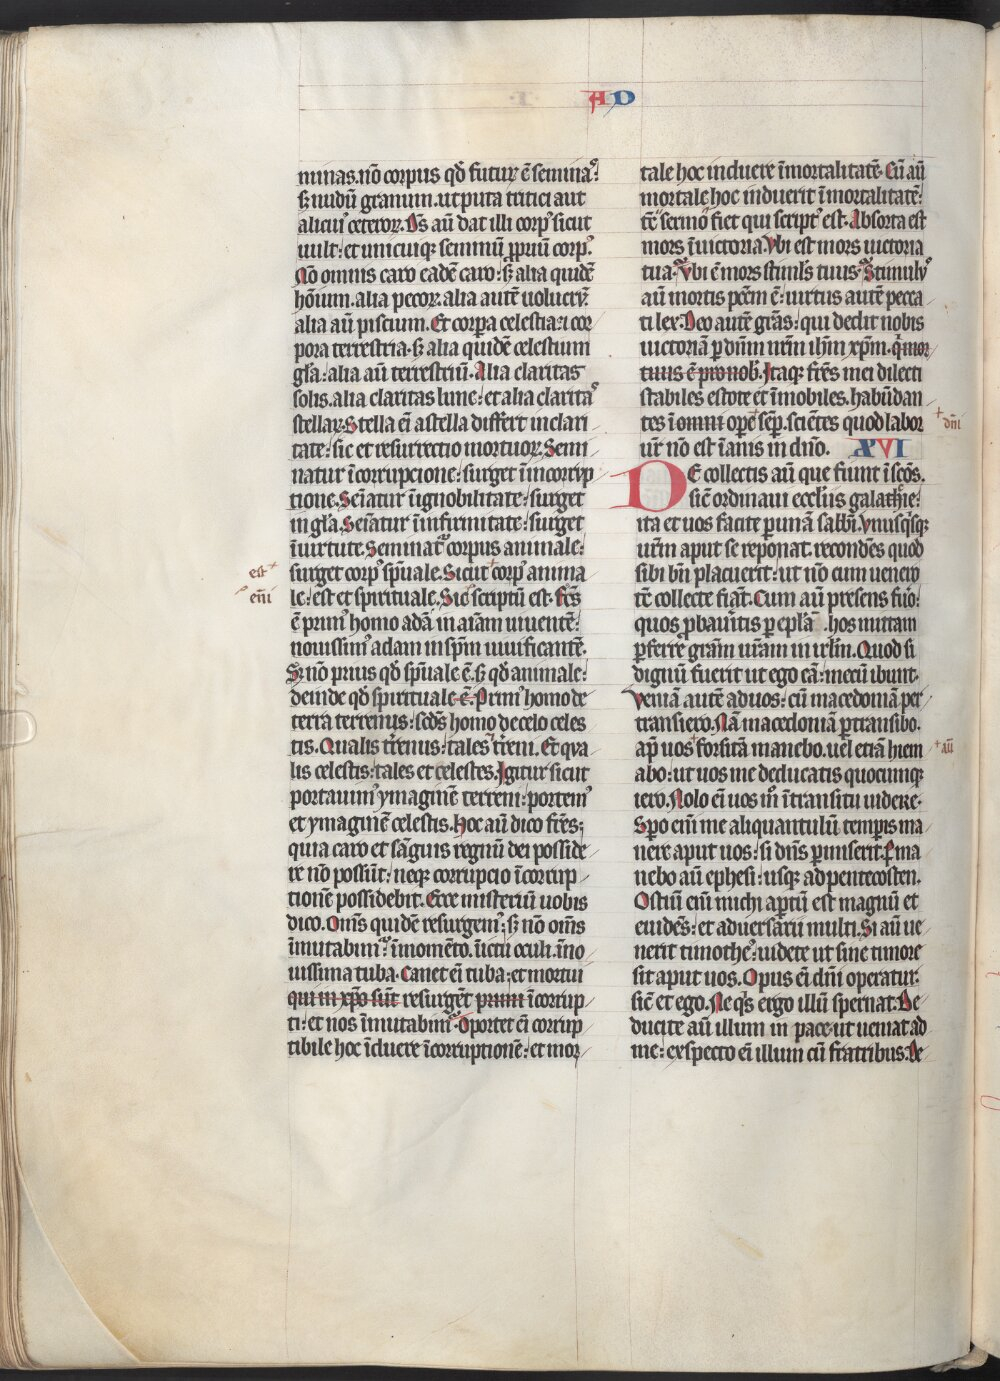 AD
minas. nō corpus qđ futuꝝ ē semina᷒:
sꝫ nudū granum. ut puta tritici aut
alicui᷒ ceteroꝝ. Ds̄ aū dat illi corp᷒ sicut
uult: et unicuiqꝫ seminū ꝓpriū corp᷒.
Nō omnis caro eadē caro: sꝫ alia quidē
hōium. alia pecoꝝ. alia autē uolucrꝝ
alia aū piscium. Et corpora celestia: ⁊ cor
pora terrestria. sꝫ alia quidē celestium
gl̄a: alia aū terrestriū. Alia claritas
solis. alia claritas lune: et alia clarita᷒
stellaꝝ. Stella eī a stella differt in clari
tate: sic et resurrectio mortuoꝝ. Semi
natur ī corrupcione: surget ī incorrup
tione. Semīatur ī ignobilitate: surget
in gl̄a. Semīatur ī infirmitate: surget
ī uirtute. Seminat᷒ corpus animale:
est
surget corp᷒ sp̄uale. Sicut + corp᷒ anima
enī
le: est et spirituale. Sic scriptū est. Fcs̄
ē prim᷒ homo adā in aīam uiuentē:
nouissim᷒ adam in sp̄m uiuificantē.
Sꝫ nō prius qđ sp̄uale ē. sꝫ qđ animale:
deinde qđ spirituale ē. Prim᷒ homo de
terra terrenus: scds̄ homo de celo celes
tis. Qualis tr̄enus: tales tr̄eni. Et qua
lis celestis: tales et celestes. Igitur sicut
portauim᷒ ymaginē terreni: portem᷒
et ymaginē celestis. Hoc aū dico frēs:
quia caro et sāguis regnū dei posside
re nō possūt: neqꝫ corrupcio īcorrup
tionē possidebit. Ecce misteriū uobis
dico. Omēs quidē resurgem᷒: sꝫ nō omēs
īmutabim᷒. ī momēto. ī ictu oculi. ī no
uissima tuba. Canet eī tuba: et mortui
qui in xp̄o sūt resurgēt primi īcorrup
ti: et nos īmutabim᷒. Oportet eī corrup
tibile hoc īduere īcorruptionē: et mor
tale hoc induere īmortalitatē. Cū aū
mortale hoc induerit īmortalitatē:
tc̄ sermo fiet qui script᷒ est. Absorta est
mors ī uictoria. Vbi est mors uictoria
tua. Vbi ē mors stimul᷒ tuus. Stimul᷒
aū mortis pcc̄m ē: uirtus autē pecca
ti lex. Deo autē gr̄as: qui dedit nobis
uictoriā ꝑ dn̄m nr̄m ihm̄ xp̄m. q̄ mor
tuus ē pro nob᷒. Itaqꝫ frēs mei dilecti
stabiles estote et īmobiles. habūdan
tes ī omni ope + sēp. sciētes quod labor
dn̄i
ur̄ nō est īanis in dn̄o.
XVI
DE collectis aū que fiunt ī sc̄os.
sic̄ ordinaui eccl̄iis galathie:
ita et uos facite ꝑ unā sabb̄i. Vnusqⁱsqꝫ
ur̄m aput se reponat. recondēs quod
sibi bn̄ placuerit: ut nō cum uenero
tc̄ collecte fiāt. Cum aū presens fu᷒o:
quos ꝓbaueritis ꝑ ep̄lā. hos mittam
ꝑferre gr̄am ur̄am in irl̄m. Quod si
dignū fuerit ut ego eā: mecū ibunt.
Veniā autē ad uos: cū macedoniā per
transiero. Nā macedoniā ꝑtransibo.
ap̄ uos + forsitā manebo. uel etiā hiem
aū
abo: ut uos me deducatis quocumqꝫ
iero. Nolo eī uos m̊ ī transitu uidere.
Spero enī me aliquantulū temporis ma
nere aput uos: si dn̄s ꝑmiserit. Ꝑma
nebo aū ephesi: usqꝫ ad pentecosten.
Ostiū enī michi aꝑtū est magnū et
euidēs: et aduersarii multi. Si aū ue
nerit timothe᷒: uidete ut sine timore
sit aput uos. Opus eī dn̄i operatur:
sic̄ et ego. Ne qⁱs ergo illū spernat. De
ducite aū illum in pace: ut ueniat ad
me: exspecto eī illum cū fratribus. De